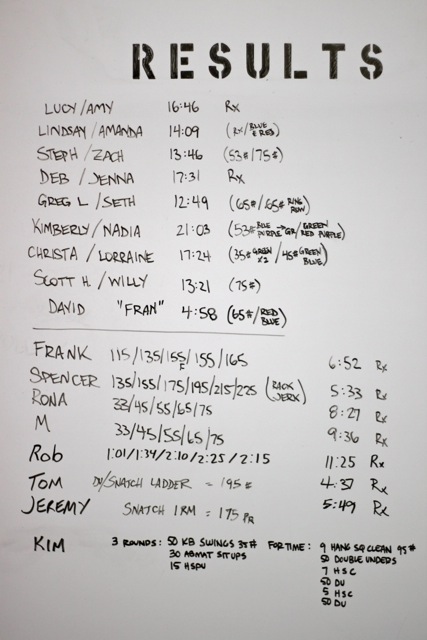 RESULTS
LUCY/AMY 16:46 Rx
LINDSAY/AMANDA 14:09 (Rx/BLUE & RED)
STEPH/ZACH 13:46 (53#/75#)
DEB/JENNA 17:31 Rx
GREG L/SETH 12:49 (65#/65# RING ROW)
KIMBERLY/NADIA 21:03 (53# BLUE PURPLE → GR/GREEN RED PURPLE)
CHRISTA/LORRAINE 17:24 (35# GREEN X2/45# GREEN BLUE)
SCOTT H./WILLY 13:21 (75#)
DAVID "FRAN" 4:58 (65#/RED BLUE)
FRANK 115/135/155/155/165 6:52 Rx
F
SPENCER 135/155/175/195/215/225 (RACK JERK) 5:33 Rx
RONA 33/45/55/65/75 8:27 Rx
M 33/45/55/65/75 9:36 Rx
Rob 1:01/1:34/2:10/2:25/2:15 11:25 Rx
TOM DU/SNATCH LADDER = 195# 4:37 Rx
JEREMY SNATCH 1RM = 175 PR 5:49 Rx
KIM 3 ROUNDS: 50 KB SWINGS 35# FOR TIME: 9 HANG SQ CLEAN 95#
30 ABMAT SITUPS 50 DOUBLE UNDERS
15 HSPU 7 HSC
50 DU
5 HSC
50 DU